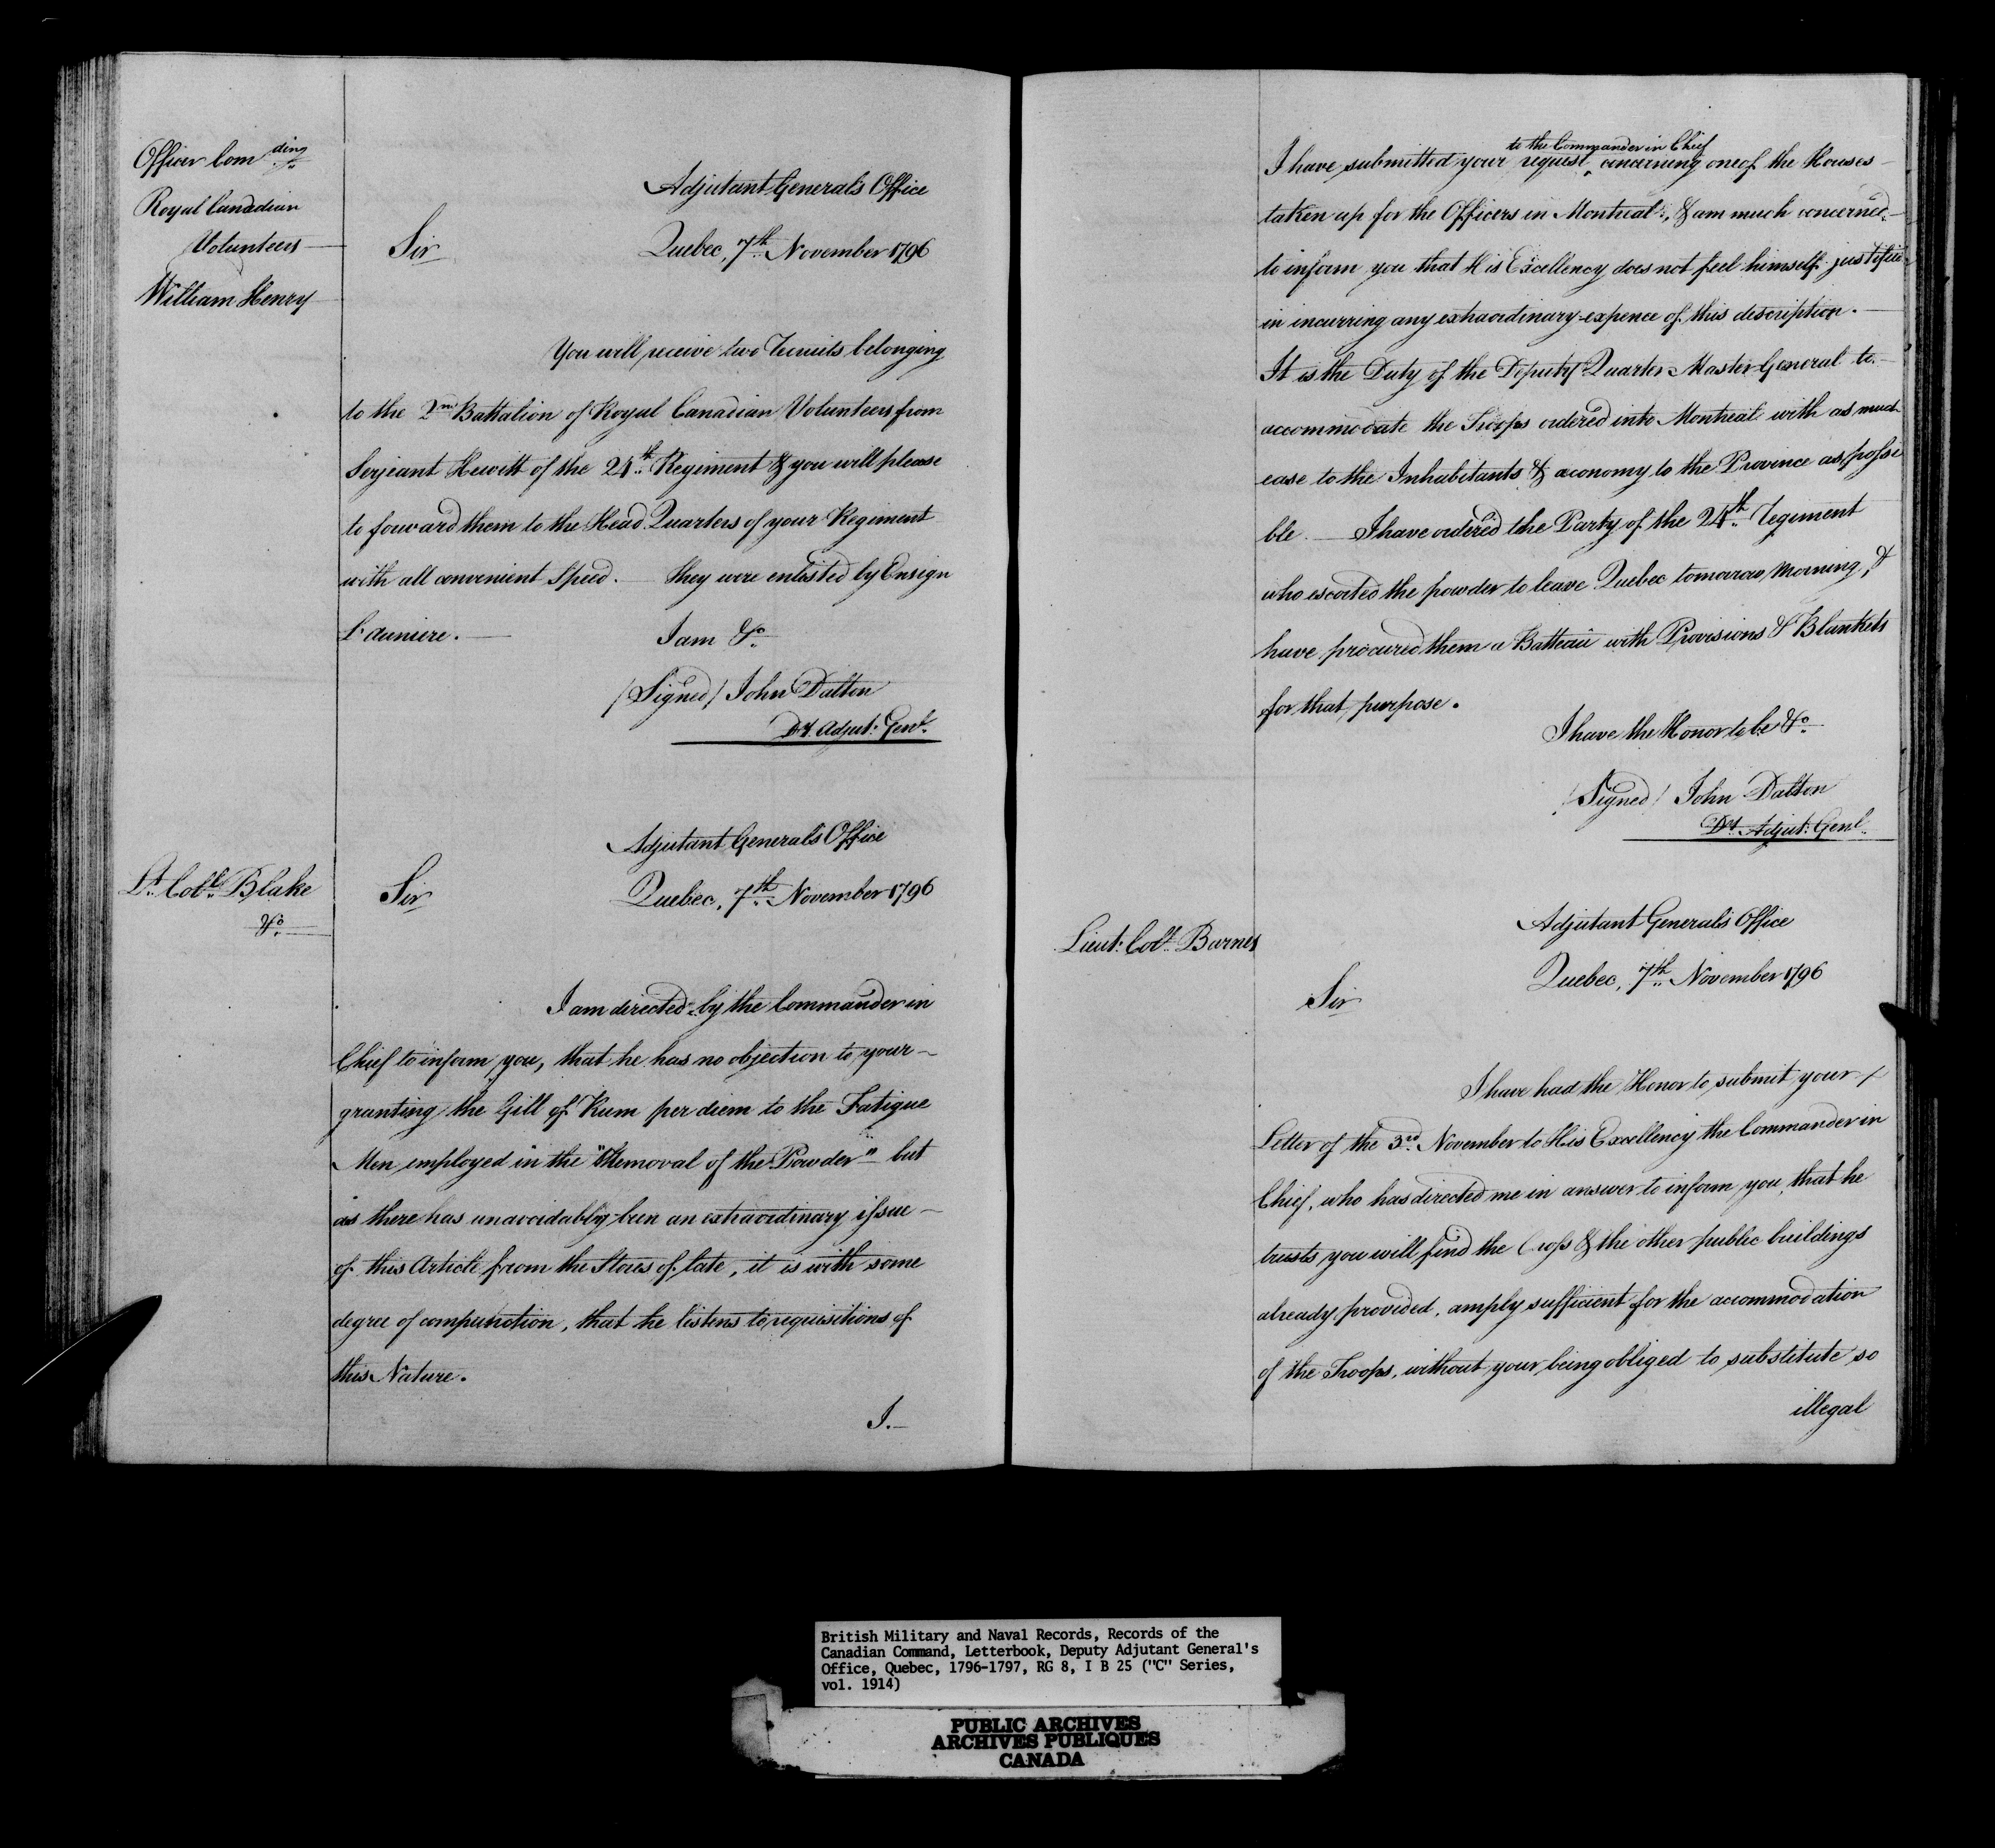 Officer Com ding
Royal Canadian
Volunteers
William Henry
Adjutant Generals Office
Sir
Quebec, 7th November 1796
You will receive two Recruits belonging
to the 2nd Battalion of Royal Canadian Volunteers from
Serjeant Hewitt of the 24th Regiment & you will please
to forward them to the Head Quarters of your Regiment
with all convenient Speed. — they were enlisted by Ensign
Launiere. —
I am &c
/Signed/ John Dalton
Dy. Adjut: Genl.
Adjutant Generals Office
Lt. Coll. Blake
&c
Sir
Quebec, 7th November 1796
I am directed by the Commander in
Chief to inform you, that he has no objection to your —
granting the Gill of Rum per diem to the Fatigue
Men employed in the "Removal of the Powder" but
as there has unavoidably been an extraordinary issue —
of this Article from the Stores of late, it is with some
degree of compunction, that he listens to requisitions of
this Nature.
I. —
to the Commander in Chief
I have submitted your request, concerning one of the Houses —
taken up for the Officers in Montreal, & am much concerned —
to inform you that His Excellency does not feel himself justified
in incurring any extraordinary expence of this description. —
It is the Duty of the Deputy Quarter Master General to —
accommodate the Troops ordered into Montreal with as much
ease to the Inhabitants & œconomy to the Province as possi
ble. — I have ordered the Party of the 24th Regiment
who escorted the powder to leave Quebec tomorrow Morning, &
have procured them a Batteau with Provisions & Blankets
for that purpose.
I have the Honor to be &c
/Signed/ John Dalton
Dy. Adjut: Genl.
Adjutant Generals Office
Lieut: Coll. Barnes
Quebec, 7th November 1796
Sir
I have had the Honor to submit your
Letter of the 3rd. November to His Excellency the Commander in
Chief, who has directed me in answer to inform you, that he
trusts you will find the & the other public buildings
already provided, amply sufficient for the accommodation
of the Troops, without your being obliged to substitute so
illegal
British Military and Naval Records, Records of the
Canadian Command, Letterbook, Deputy Adjutant General's
Office, Quebec, 1796-1797, RG 8, I B 25 ("C" Series,
vol. 1914)
PUBLIC ARCHIVES
ARCHIVES PUBLIQUES
CANADA